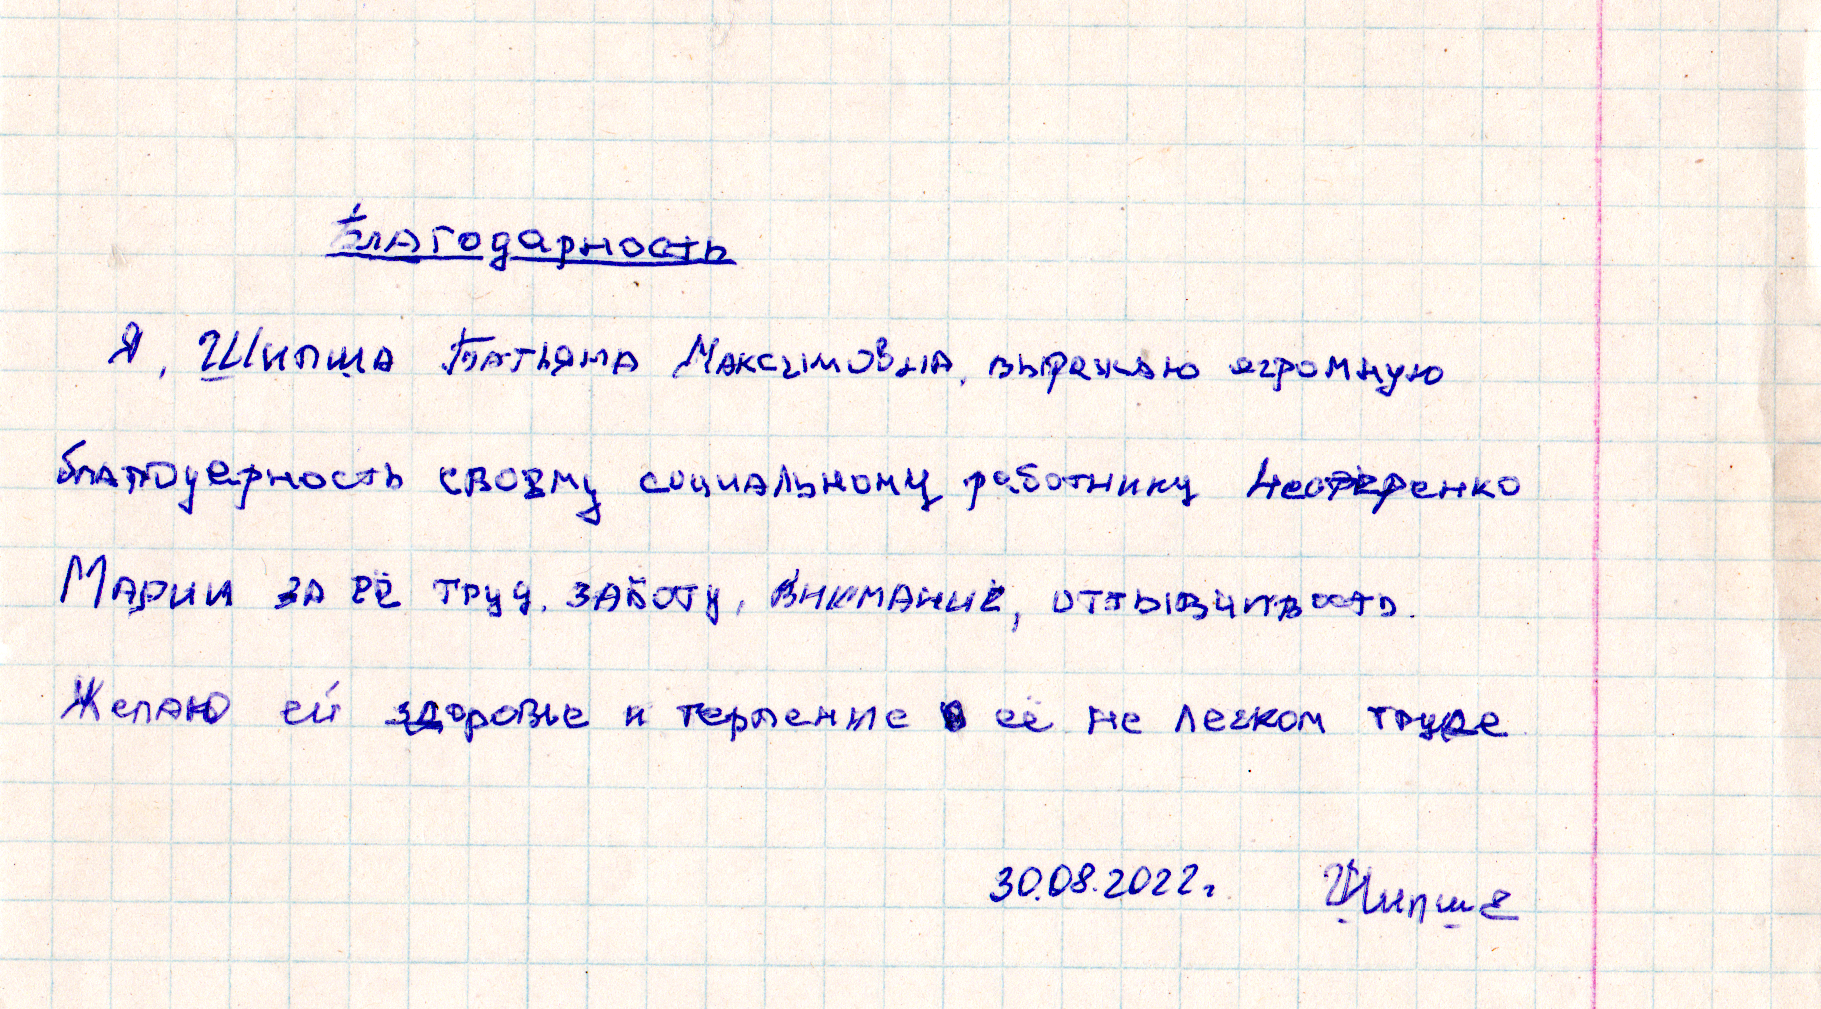 Благодарность
Я, Шипша Татьяна Максимовна, выражаю огромную
благодарность своему социальному работнику Нестеренко
Марии за её труд, заботу, внимание, отзывчивость.
Желаю ей здоровье и терпение в её не легком труде
30.08.2022г. Шипша